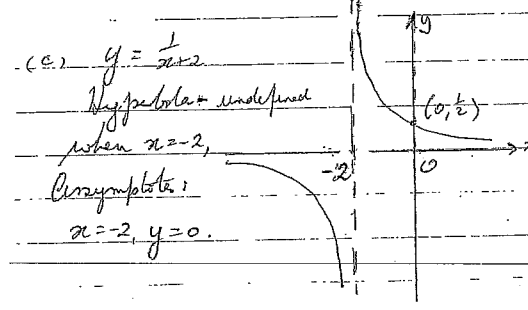 (c) y = 1/x+2
Hyperbola - undefined
when x = -2,
Assymptotes:
x = -2, y = 0.
y
(0, 1/2)
-2
0
x